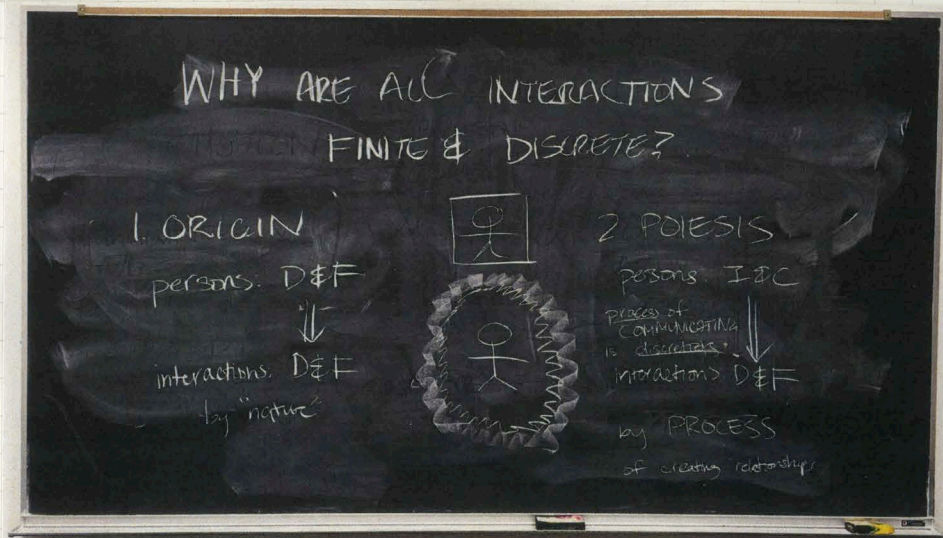 WHY ARE ALL INTERACTIONS
FINITE & DISCRETE?
1. ORIGIN
persons: D&F
interactions: D&F
by "nature"
2 POIESIS
persons: I&C
process of
COMMUNICATING
is discretizing.
interactions D&F
by PROCESS
of creating relationships